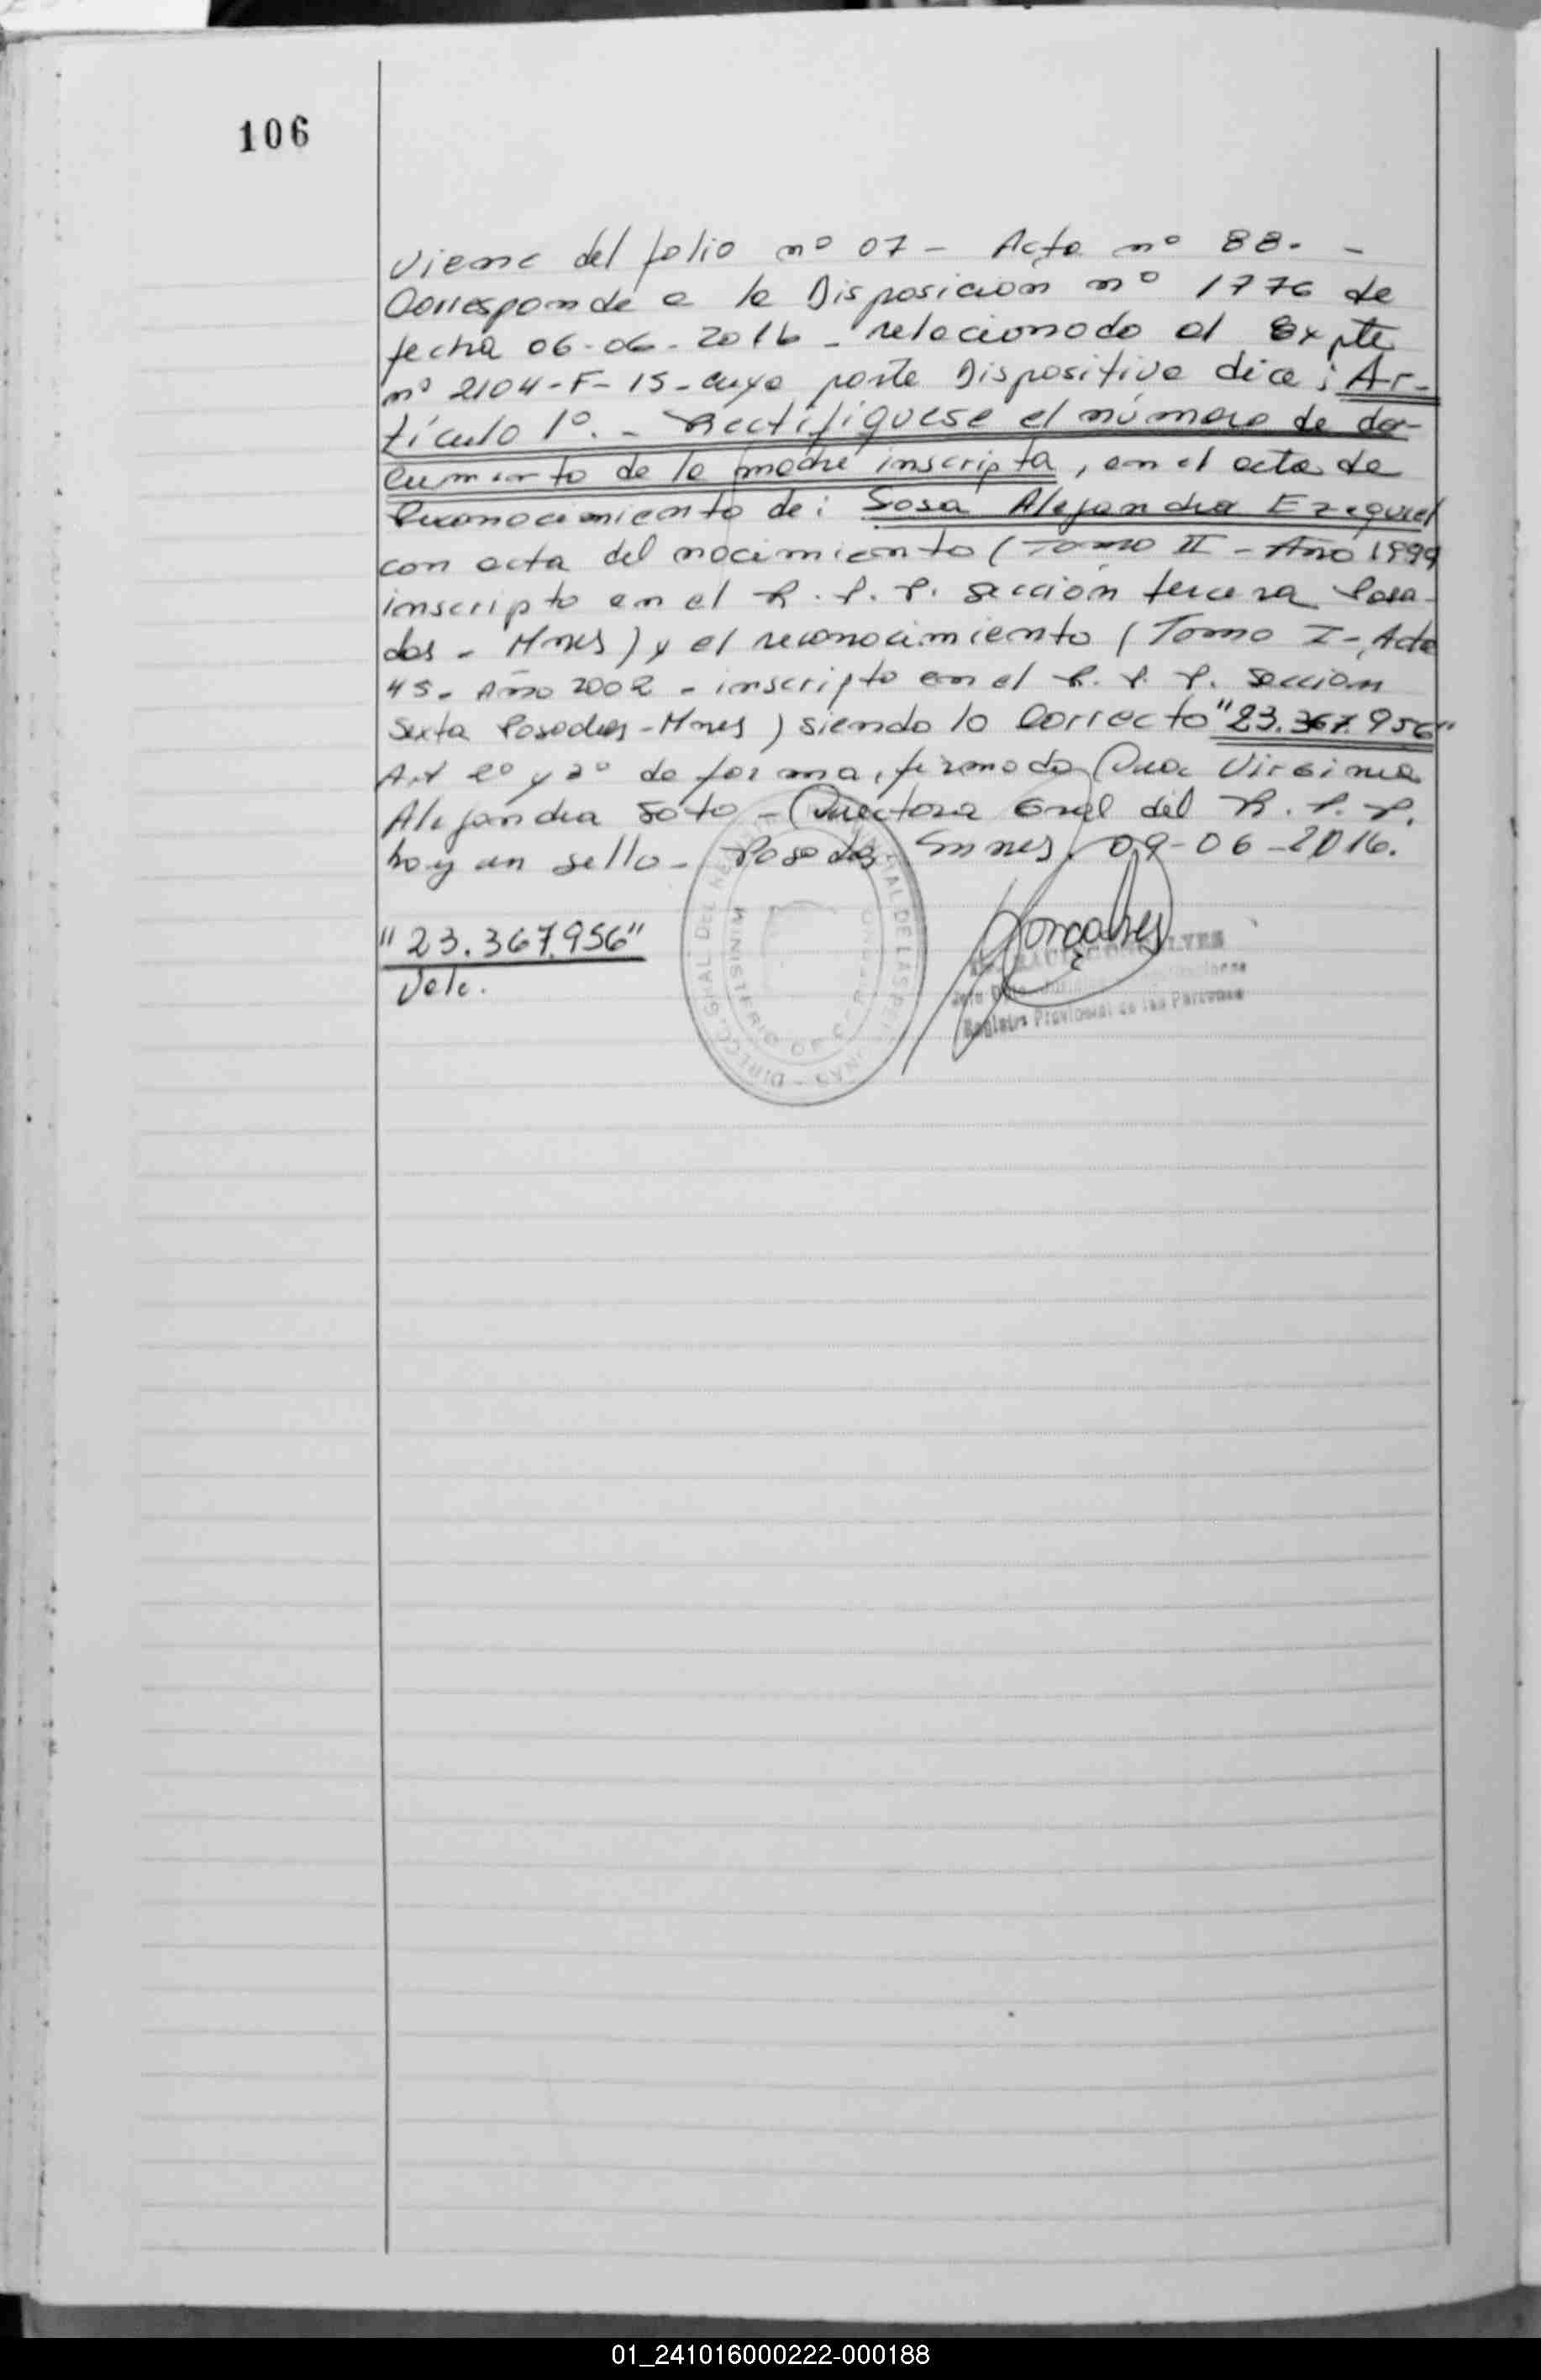 106
Viene del folio nº 07 - Acta nº 88. -
Corresponde a la Disposición nº 1776 de
fecha 06-06-2016 - relacionado al Expte
nº 2104-F-15- cuya parte Dispositiva dice: Ar-
tículo 1º. - Rectifíquese el número de do-
cumento de la madre inscripta, en el acta de
Reconocimiento de: Sosa Alejandro Ezequiel
con acta del nacimiento (Tomo II - Año 1999
inscripto en el R. P. P. sección tercera Posa-
das - Mnes) y el reconocimiento (Tomo I - Acta
45- Año 2002 - inscripto en el R. P. P. Sección
Sexta Posadas-Mnes) siendo lo Correcto "23.367.956"
Art 2º y 3º de forma, firmado Dra. Virginia
Alejandra Soto - Directora Gral del R. P. P.
hoy un sello - Posadas Mnes, 09-06-2016.
"23.367.956"
Vale.
Goncalves
Registro Provincial de las Personas
01_241016000222-000188